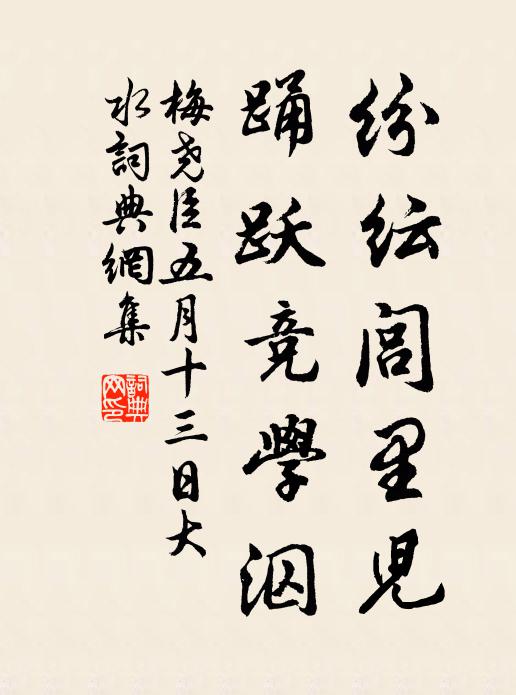 纷纭闾里児
踊跃竞學泅
梅尧臣五月十三日大
水詞典網集
詞典网印